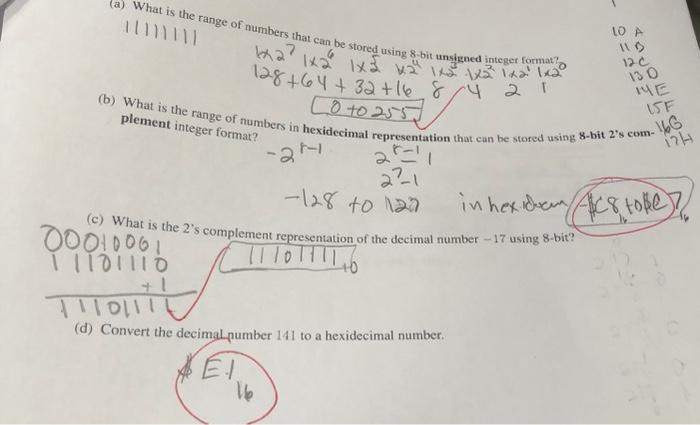 (a) What is the range of numbers that can be stored using 8-bit unsigned integer format?
11111111
1x2^7 1x2^6 1x2^5 1x2^4 1x2^3 1x2^2 1x2^1 1x2^0
128+64+32+16 8 4 2 1
0 to 255
10 A
11 B
12 C
13 D
14 E
15 F
16 G
17 H
(b) What is the range of numbers in hexidecimal representation that can be stored using 8-bit 2's com-
plement integer format?
-2^r-1 2^r-1 1
2^7-1
-128 to 127 in hex
(c) What is the 2's complement representation of the decimal number −17 using 8-bit?
00010001
11101110
+1
11101111
11101111
(d) Convert the decimal number 141 to a hexidecimal number.
$E1 16